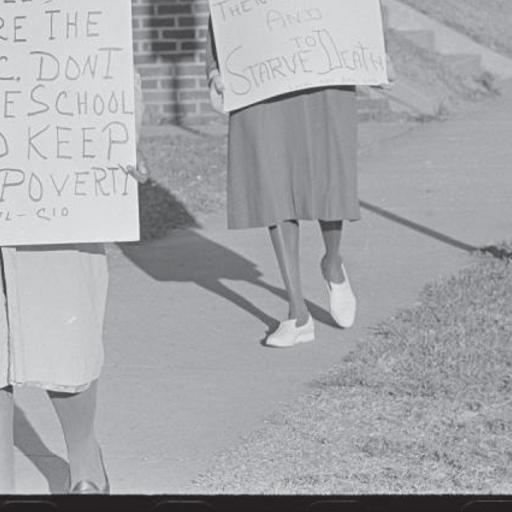 RE THE
C. DONT
E SCHOOL
O KEEP
POVERTY
L-CIO
THEIR
AND
TO
STARVE DEATH